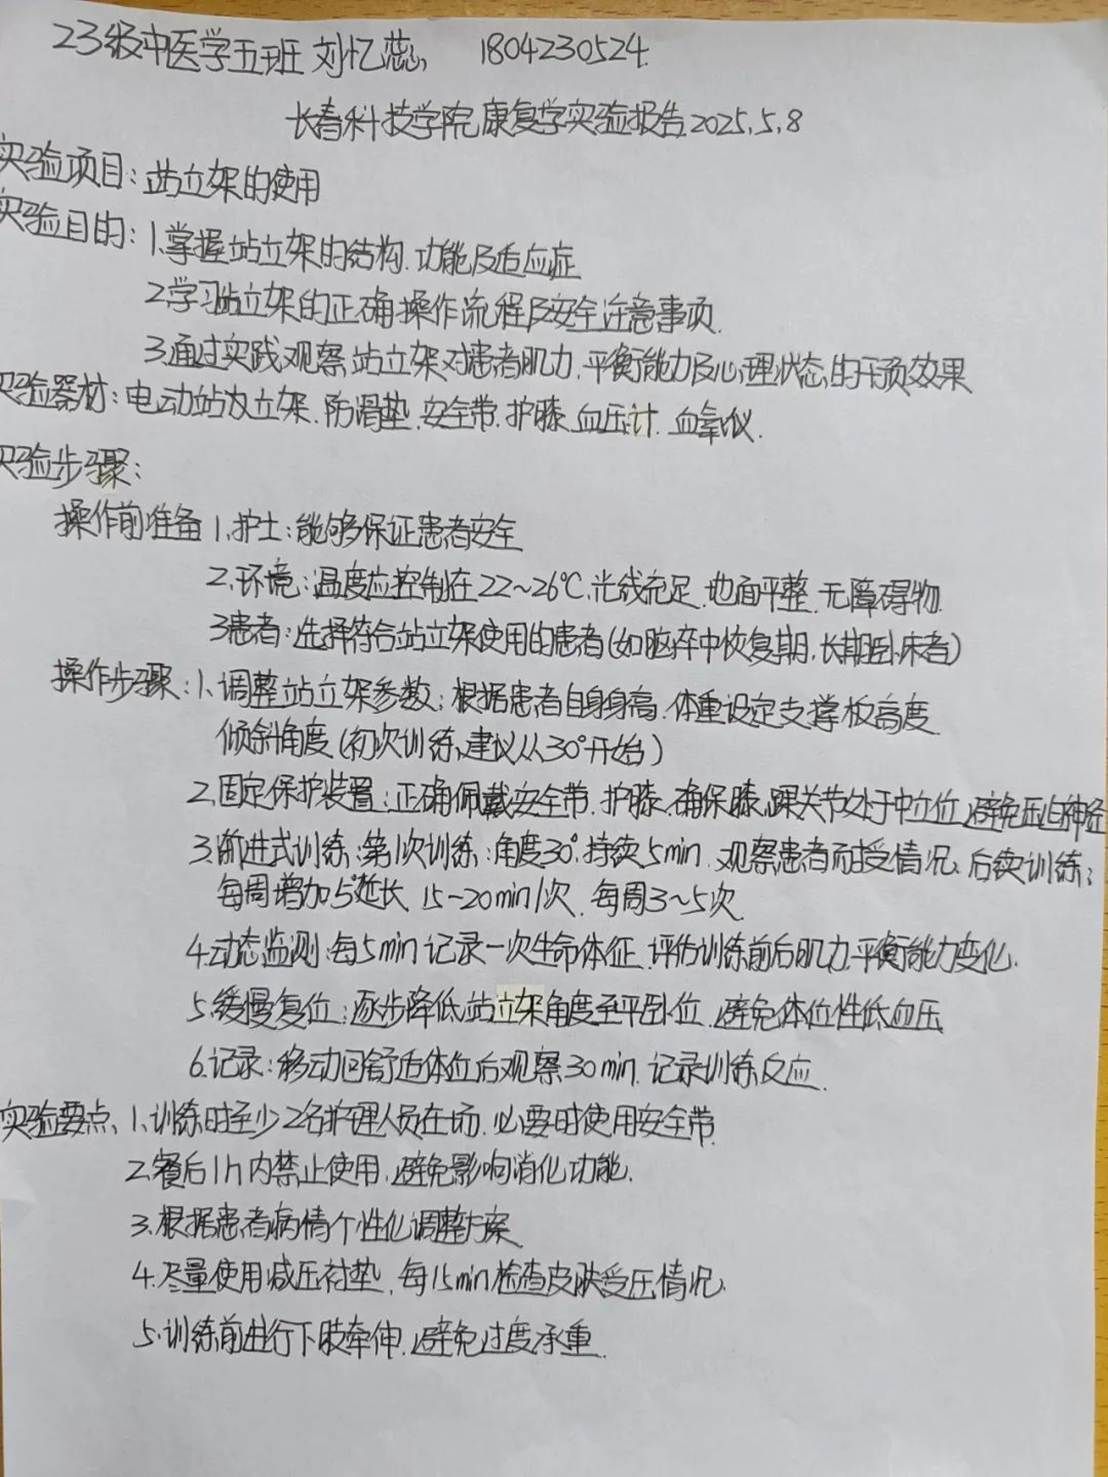 23级中医学五班 刘忆蕊 1804230524.
长春科技学院康复学实验报告2025.5.8
实验项目:站立架的使用
实验目的:1.掌握站立架的结构.功能及适应症
2.学习站立架的正确操作流程及安全注意事项.
3.通过实践观察站立架对患者肌力.平衡能力及心理状态的干预效果
实验器材:电动站立架.防滑垫.安全带.护膝.血压计.血氧仪.
实验步骤:
操作前准备 1.护士:能够保证患者安全
2.环境:温度应控制在22~26℃.光线充足.地面平整.无障碍物
3患者:选择符合站立架使用的患者(如脑卒中恢复期.长期卧床者)
操作步骤:1.调整站立架参数:根据患者自身身高.体重设定支撑板高度.
倾斜角度(初次训练建议从30°开始)
2.固定保护装置:正确佩戴安全带.护膝.确保膝.踝关节处于中立位.避免压迫神经
3.渐进式训练:第1次训练:角度30°.持续5min.观察患者耐受情况.后续训练:
每周增加5°延长 15~20min/次.每周3~5次.
4.动态监测:每5min记录一次生命体征.评估训练前后肌力.平衡能力变化.
5.缓慢复位:逐步降低站立架角度至平卧位.避免体位性低血压
6.记录:移动回舒适体位后观察30min.记录训练反应.
实验要点、1.训练时至少2名护理人员在场.必要时使用安全带.
2.餐后1h内禁止使用.避免影响消化功能.
3.根据患者病情个性化调整方案
4.尽量使用减压衬垫.每15min检查皮肤受压情况.
5.训练前进行下肢牵伸.避免过度承重.